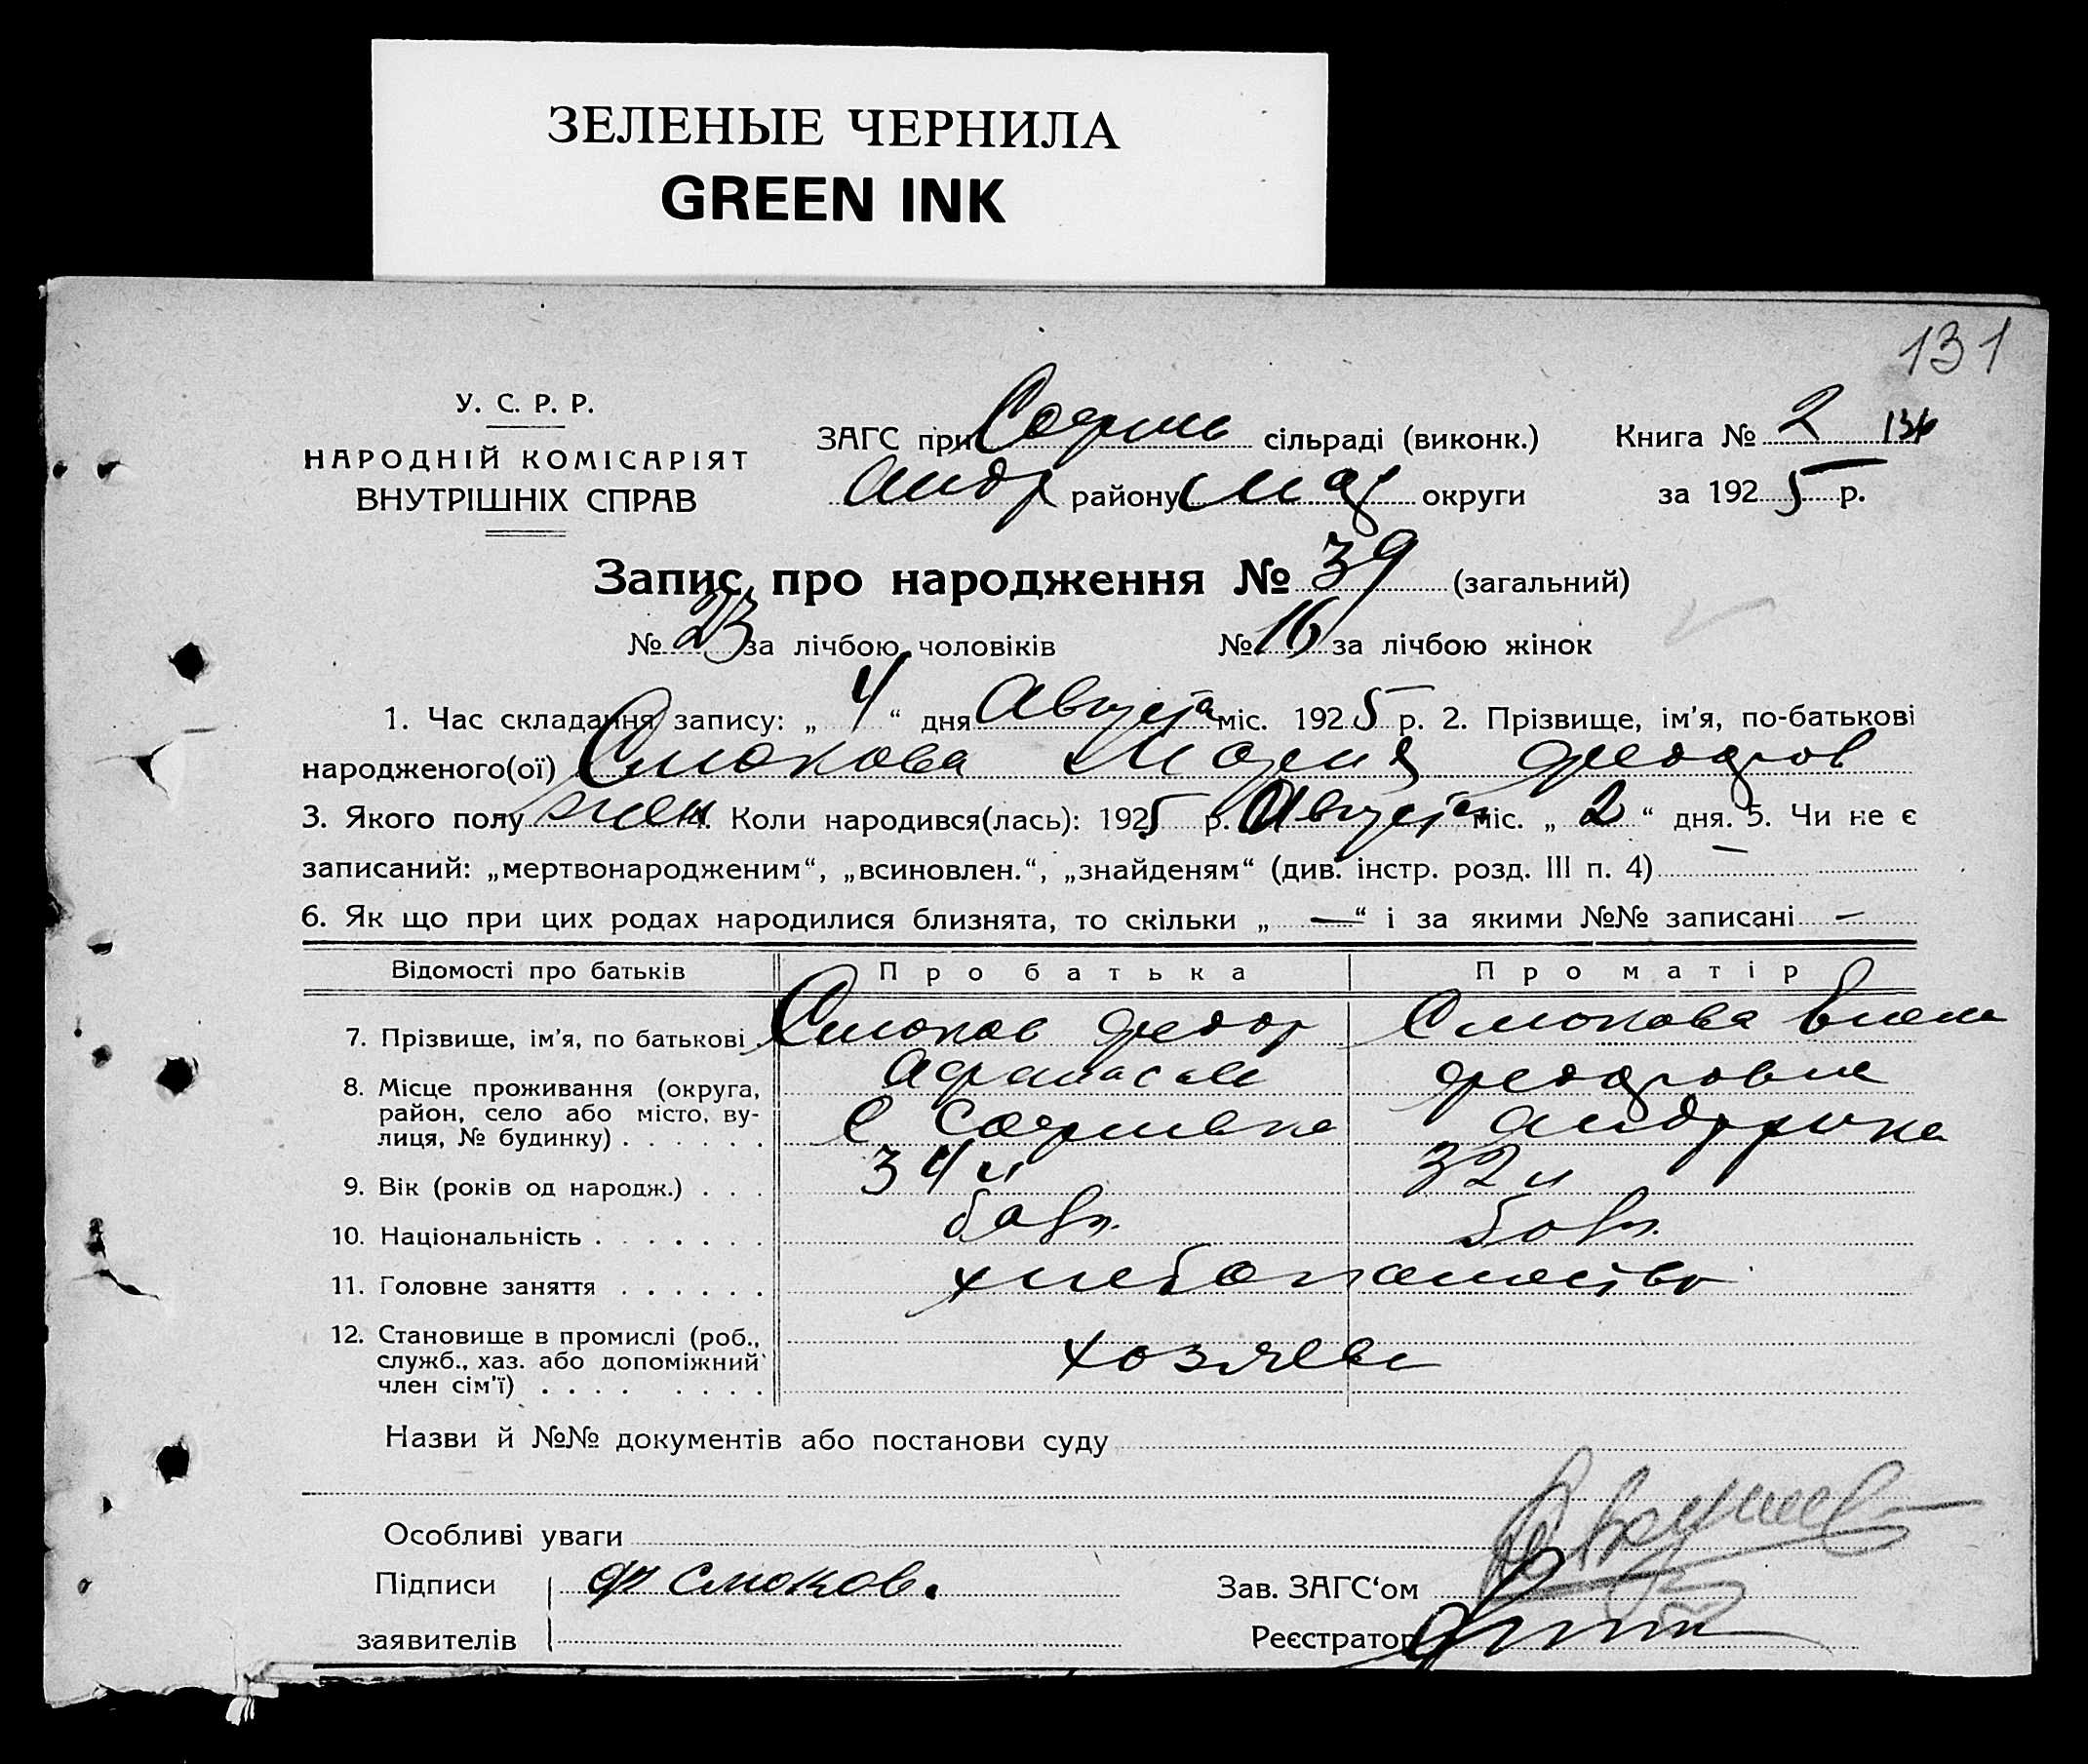 ЗЕЛЕНЫЕ ЧЕРНИЛА
GREEN INK
131
У. С. Р. Р.
НАРОДНІЙ КОМІСАРІЯТ
ВНУТРІШНІХ СПРАВ
ЗАГС при Софиев сільраді (виконк.)
Андр району округи
Книга № 2
за 1925 р.
Запис про народження № 39 (загальний)
№ 23 за лічбою чоловіків № 16 за лічбою жінок
1. Час складання запису: „ 4 “ дня Августа міс. 1925 р. 2. Прізвище, ім'я, по-батькові
народженого(ої) Смокова Мария Феодров
3. Якого полу жен 4. Коли народився(лась): 1925 р. Августа міс. „ 2 “ дня. 5. Чи не є
записаний: „мертвонародженим“, „всиновлен.“, „знайденям“ (див. інстр. розд. III п. 4) —
6. Як що при цих родах народилися близнята, то скільки „ — “ і за якими №№ записані —
Відомості про батьків Про батька Про матір
7. Прізвище, ім'я, по батькові . Смоков Федор Смокова Елена
Афанасие Феодровне
8. Місце проживання (округа,
район, село або місто, ву-
лиця, № будинку) . . . . . . С Софиевка Андровка
9. Вік (років од народж.) . . . 34 32
10. Національність . . . . . . . болг. болг.
11. Головне заняття . . . . . . хлебопашество
12. Становище в промислі (роб.,
служб., хаз. або допоміжний
член сім'ї) . . . . . . . . хозяева
Назви й №№ документів або постанови суду
Особливі уваги
Підписи Ф Смоков.
заявителів
Зав. ЗАГС'ом
Реєстратор